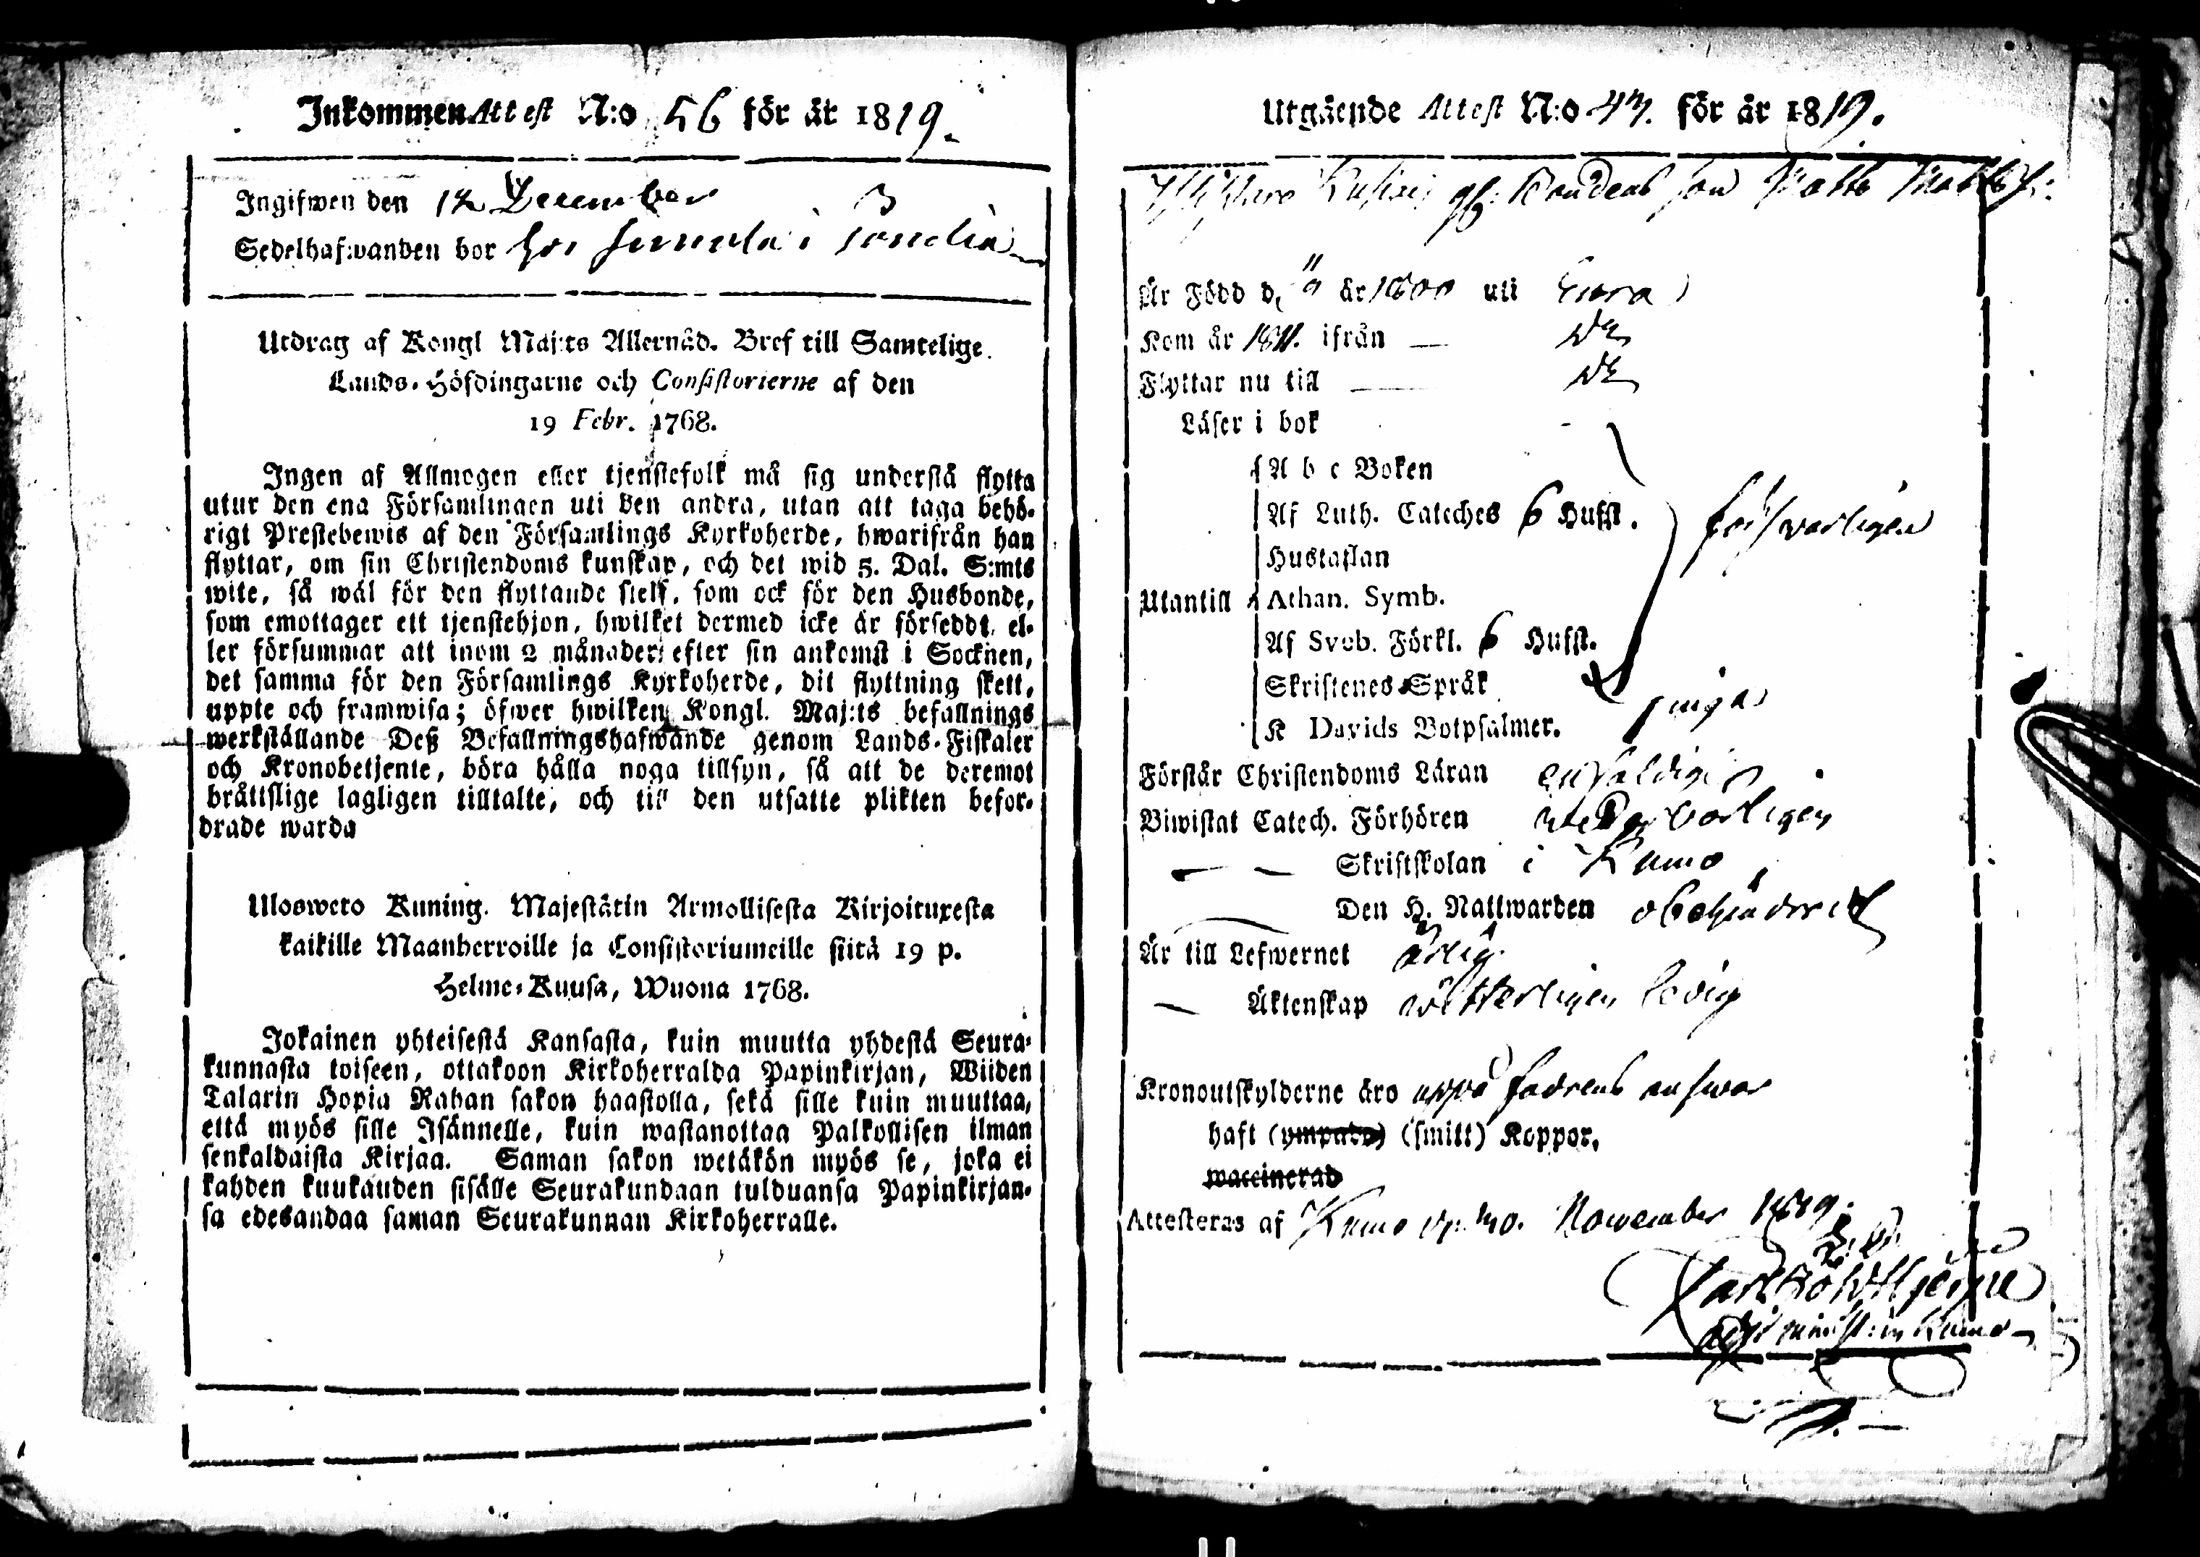 Inkommen Attest N:o 56 för år 1819.
Ingifwen den 12 December
Sedelhafwanden bor hos i
Utdrag af Kongl Maj:ts Allernåd. Bref till Samtelige
Lands-Höfdingarne och Consistorierne af den
19 Febr. 1768.
Ingen af Allmogen eller tjenstefolk må sig understå flytta
utur den ena Församlingen uti den andra, utan att taga behö-
rigt Prestebewis af den Församlings Kyrkoherde, hwarifrån han
flyttar, om sin Christendoms kunskap, och det wid 5. Dal. S:mts
wite, så wäl för den flyttande sielf, som ock för den Husbonde,
som emottager ett tjenstehjon, hwilket dermed icke är förseddt, el-
ler försummar att inom 2 månader efter sin ankomst i Socknen,
det samma för den Församlings Kyrkoherde, dit flyttning skett,
uppte och framwisa; öfwer hwilken Kongl. Maj:ts befallnings
werkställande Deß Befallningshafwande genom Lands-Fiskaler
och Kronobetjente, böra hålla noga tillsyn, så att de deremot
bråttslige lagligen tilltalte, och till den utsatte plikten befor-
drade warda
Ulosweto Kuning. Majestätin Armollisesta Kirjoituxesta
kaikille Maanherroille ja Consistoriumeille siitä 19 p.
Helme-Kuusa, Wuona 1768.
Jokainen yhteisestä Kansasta, kuin muutta yhdestä Seura-
kunnasta toiseen, ottakoon Kirkoherralda Papinkirjan, Wiiden
Talarin Hopia Rahan sakon haastolla, sekä sille kuin muuttaa,
että myös sille Isännelle, kuin wastanottaa Palkollisen ilman
senkaldaista Kirjaa. Saman sakon wetäkön myös se, joka ei
kahden kuukauden sisälle Seurakundaan tulduansa Papinkirjan-
sa edesandaa saman Seurakunnan Kirkoherralle.
Utgående Attest N:o 43. för år 1819.
Bondens son Matts Mattss:
Är Född d. är 1800 uti Eura
Kom år 1811. ifrån — Do
Flyttar nu till — Do
Läser i bok
A b c Boken
Af Luth. Cateches 6 Hufst. försvarligen
Hustaflan
Utantill Athan. Symb.
Af Sveb. Förkl. 6 Hufst.
Skriftenes Språk
K Davids Botpsalmer. inga
Förstår Christendoms Läran enfaldigt
Biwistat Catech. Förhören wederbörligen
— — Skriftskolan i Kumo
Den H. Nattwarden obehindrad
Är till Lefwernet ärlig
— Äktenskap witterligen ledig
Kronoutskylderne äro uppå fadrens answar
haft (ympade) (smitt) Koppor,
waccinerad
Attesteras af Kumo d. 20. November 1819.
Carl
adj: minist: in Kumo